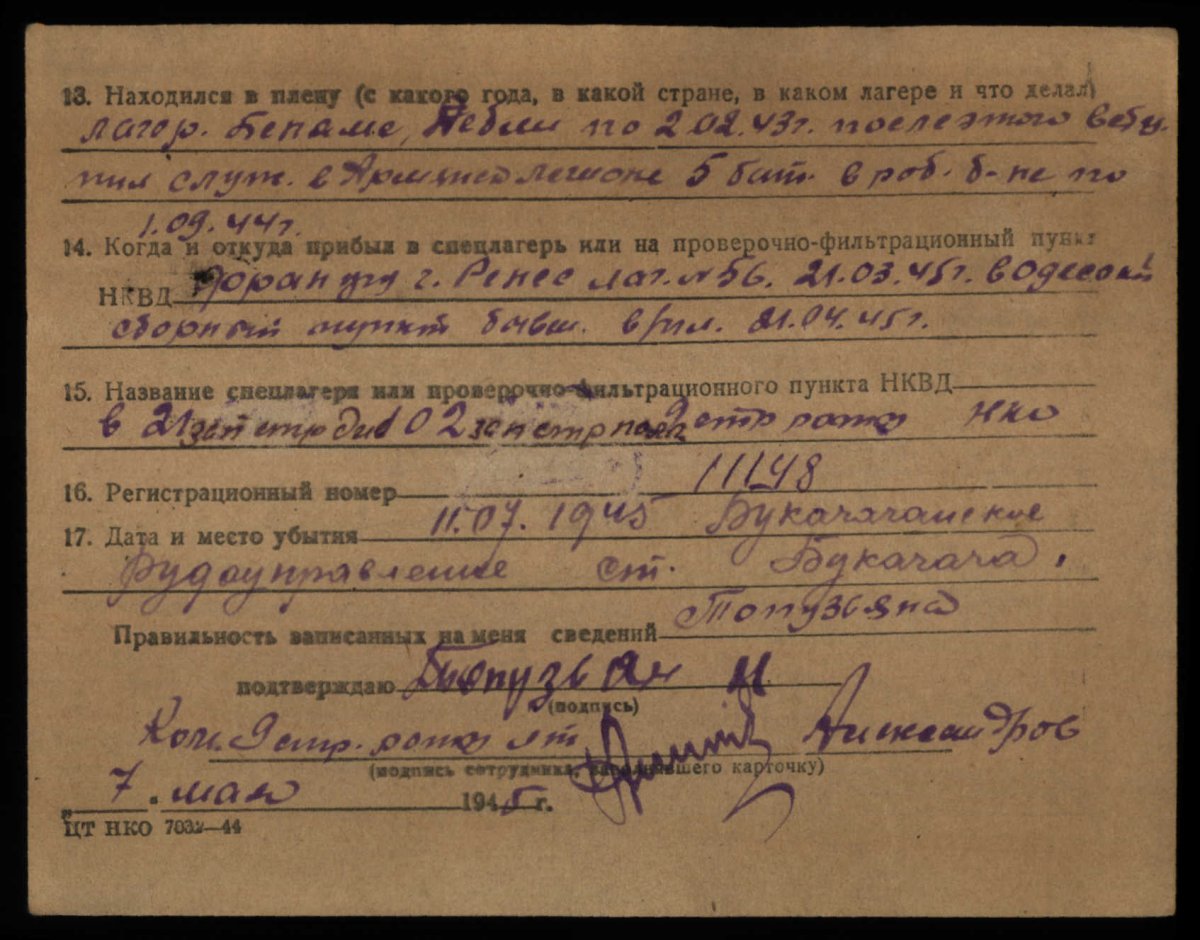 13. Находился в плену (с какого года, в какой стране, в каком лагере и что делал)
лагор. Бепаме, по 2.02.43г. после этого всту-
пил служ. в Армянск легионе 5 бат. в роб. б-не по
1.09.44г.
14. Когда и откуда прибыл в спецлагерь или на проверочно-фильтрационный пункт
НКВД г. Ренес лаг. №56. 21.03.45г. в Одесский
сборный пункт бывш. в/пл. 21.04.45г.
15. Название спецлагеря или проверочно-фильтрационного пункта НКВД
в 21 зап стр див 102 зап стр полк 9 стр рота НКО
16. Регистрационный номер 11148
17. Дата и место убытия 11.07.1945 Букачачанское
Рудоуправление ст. Букачача.
Правильность записанных на меня сведений Топузьяна
подтверждаю Топузьян
(подпись)
Ком. 9 стр. роты лт Александров
(подпись сотрудника, заполнявшего карточку)
„ 7 " мая 1945 г.
ЦТ НКО 7032—44